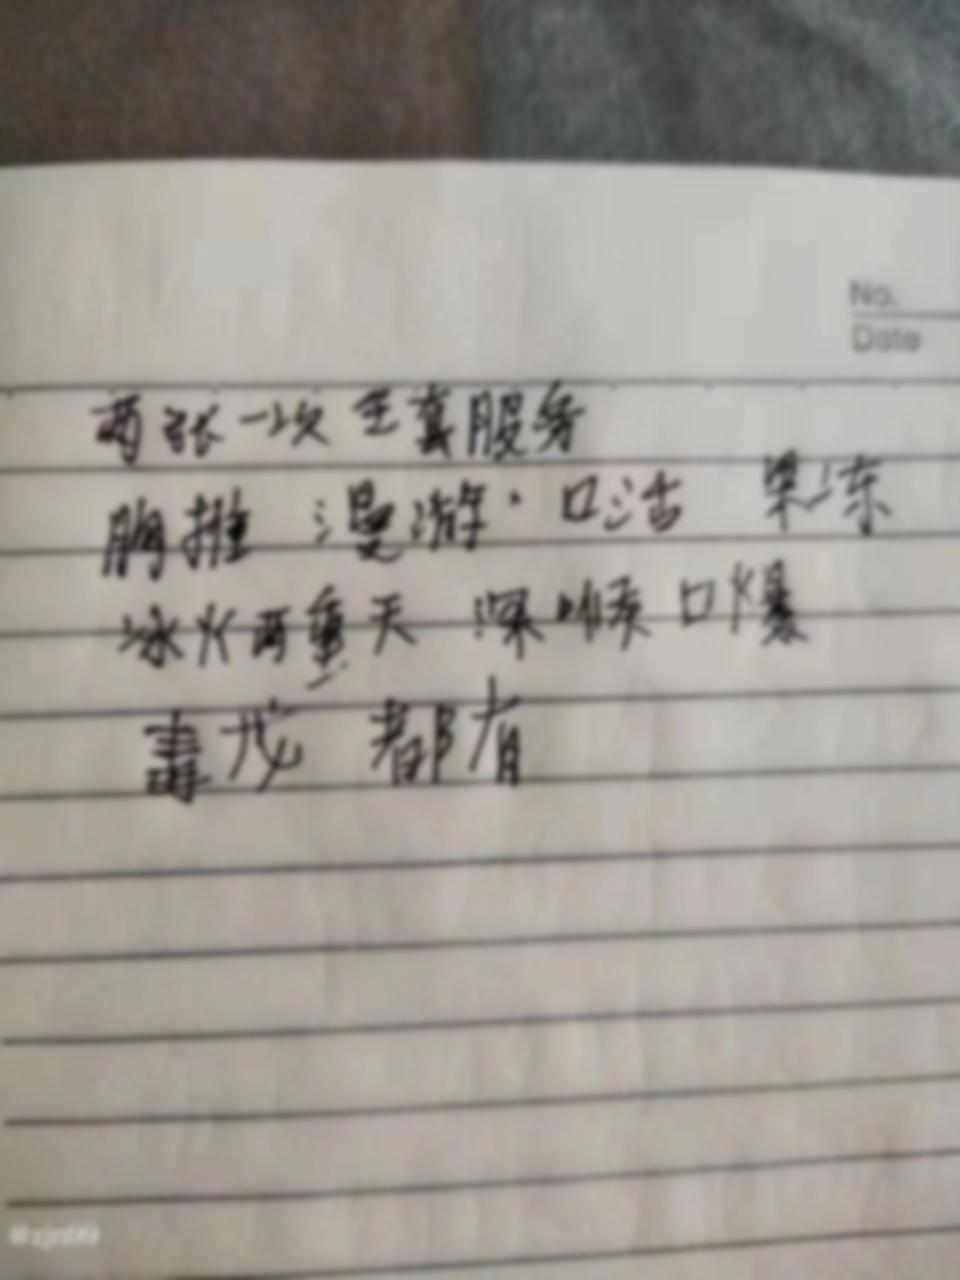 No.
Date
两张一次 全套服务
胸推 漫游·口活 果冻
冰火两重天 深喉 口爆
毒龙 都有